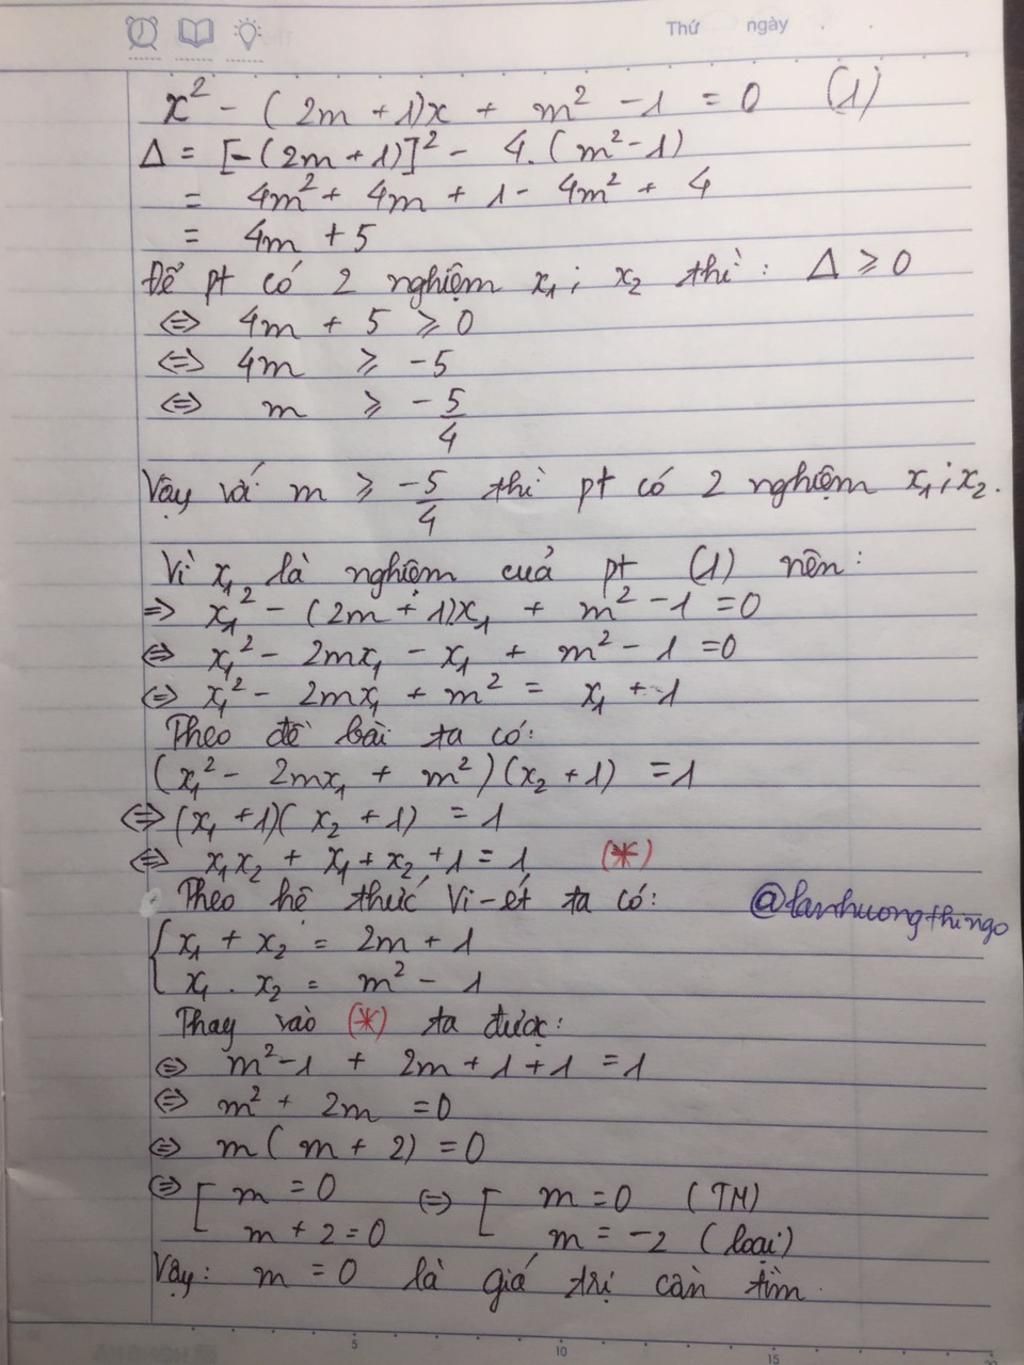 Thứ ngày
x² - (2m + 1)x + m² - 1 = 0 (1)
Δ = [-(2m + 1)]² - 4.(m² - 1)
= 4m² + 4m + 1 - 4m² + 4
= 4m + 5
Để pt có 2 nghiệm x₁ ; x₂ thì : Δ ≥ 0
⇔ 4m + 5 ≥ 0
⇔ 4m ≥ -5
⇔ m ≥ -5/4
Vậy với m ≥ -5/4 thì pt có 2 nghiệm x₁ ; x₂.
Vì x₁ là nghiệm cuả pt (1) nên :
⇒ x₁² - (2m + 1)x₁ + m² - 1 = 0
⇔ x₁² - 2mx₁ - x₁ + m² - 1 = 0
⇔ x₁² - 2mx₁ + m² = x₁ + 1
Theo đề bài ta có :
(x₁² - 2mx₁ + m²)(x₂ + 1) = 1
⇔ (x₁ + 1)(x₂ + 1) = 1
⇔ x₁x₂ + x₁ + x₂ + 1 = 1 (*)
Theo hệ thức Vi-ét ta có :
@lanhuongthingo
{ x₁ + x₂ = 2m + 1
x₁ . x₂ = m² - 1
Thay vào (*) ta được :
⇔ m² - 1 + 2m + 1 + 1 = 1
⇔ m² + 2m = 0
⇔ m(m + 2) = 0
⇔ [ m = 0 ⇔ [ m = 0 (TM)
m + 2 = 0 m = -2 (loại)
Vậy : m = 0 là giá trị cần tìm.
5 10 15